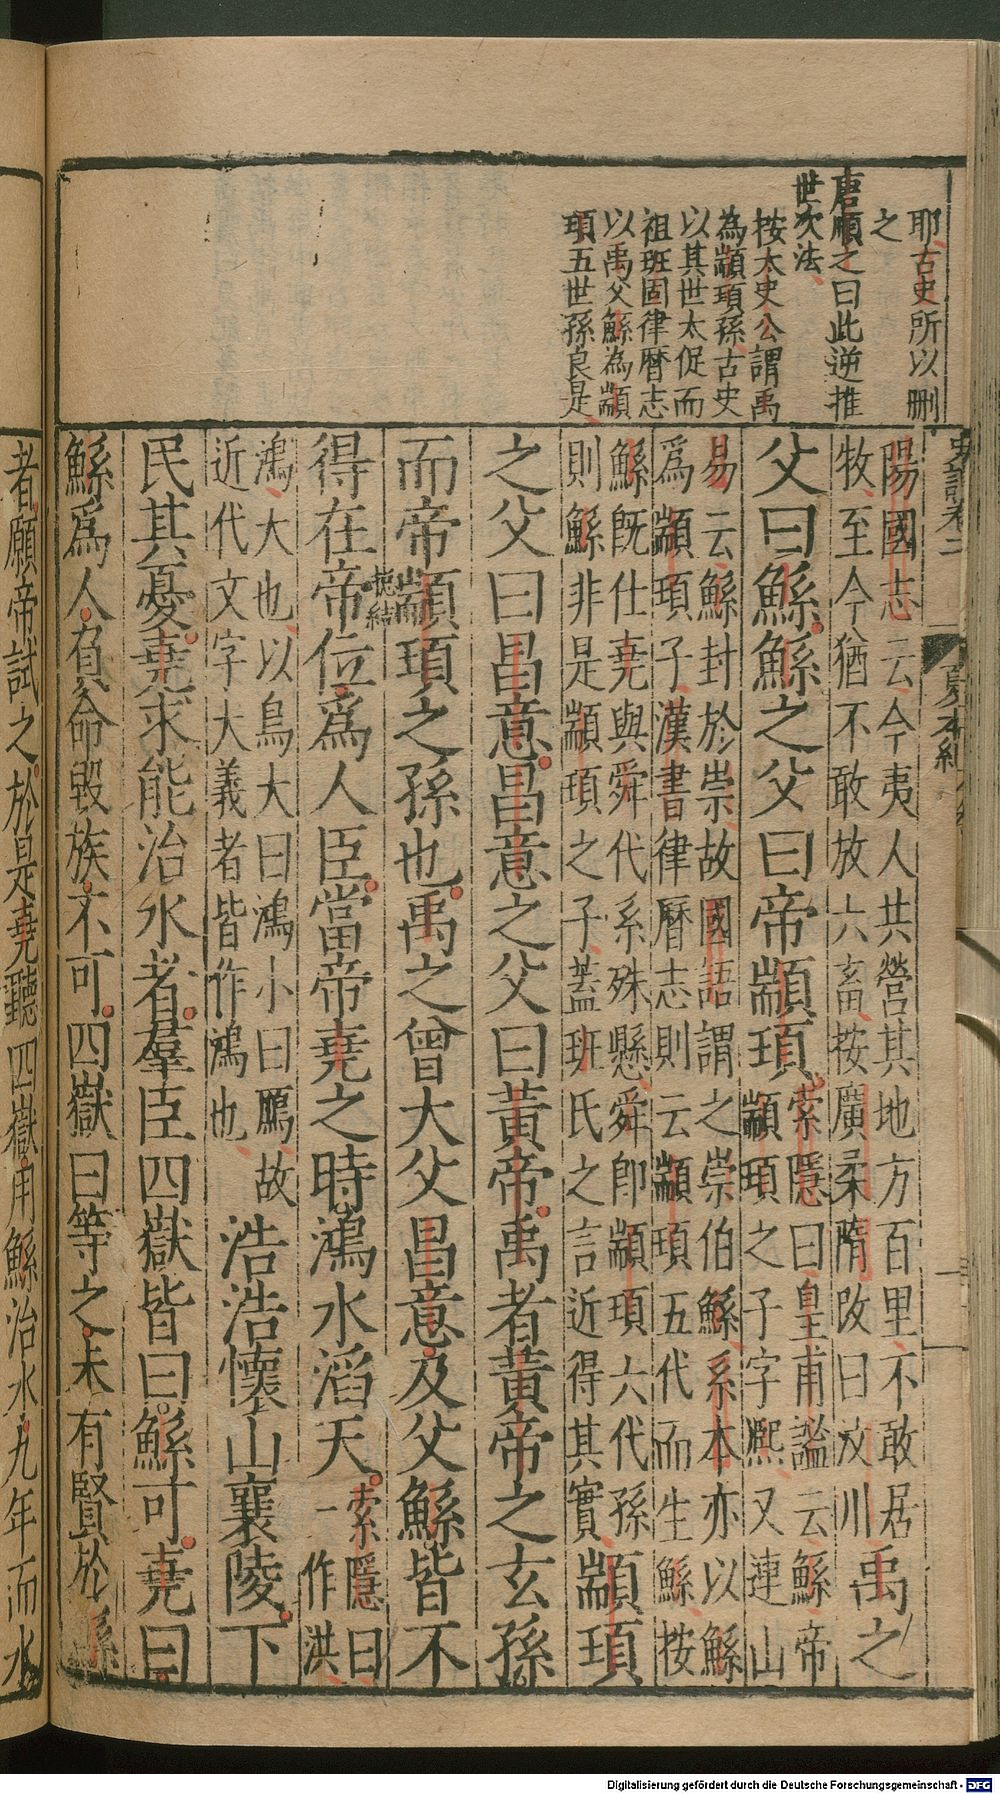 耶古史所以刪
之
唐順之曰此逆推
世次法
按太史公謂禹
為顓頊孫古史
以其世太促而
祖班固律曆志
以禹父鯀為顓
頊五世孫良是
史記卷二
夏本紀
陽國志云今夷人共營其地方百里不敢居
牧至今猶不敢放六畜按廣柔隋改曰汶川
禹之
父曰鯀鯀之父曰帝顓頊
索隱曰皇甫謐云鯀帝
顓頊之子字熙又連山
易云鯀封於崇故國語謂之崇伯鯀系本亦以鯀
爲顓頊子漢書律曆志則云顓頊五代而生鯀按
鯀既仕堯與舜代系殊懸舜即顓頊六代孫
則鯀非是顓頊之子蓋班氏之言近得其實
顓頊
之父曰昌意昌意之父曰黃帝禹者黃帝之玄孫
而帝顓頊之孫也禹之曾大父昌意及父鯀皆不
摠結
得在帝位爲人臣當帝堯之時鴻水滔天
索隱曰
一作洪
鴻大也以鳥大曰鴻小曰鴈故
近代文字大義者皆作鴻也
浩浩懷山襄陵下
民其憂堯求能治水者羣臣四嶽皆曰鯀可堯曰
鯀爲人負命毀族不可四嶽曰等之未有賢於鯀
者願帝試之於是堯聽四嶽用鯀治水九年而水
Digitalisierung gefördert durch die Deutsche Forschungsgemeinschaft - DFG